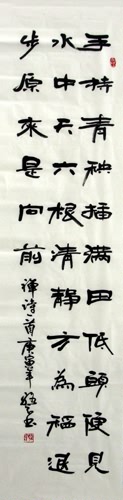 手持青秧插滿田低頭便見
水中天六根清靜方為稻退
步原來是向前
禪詩一首庚寅年書